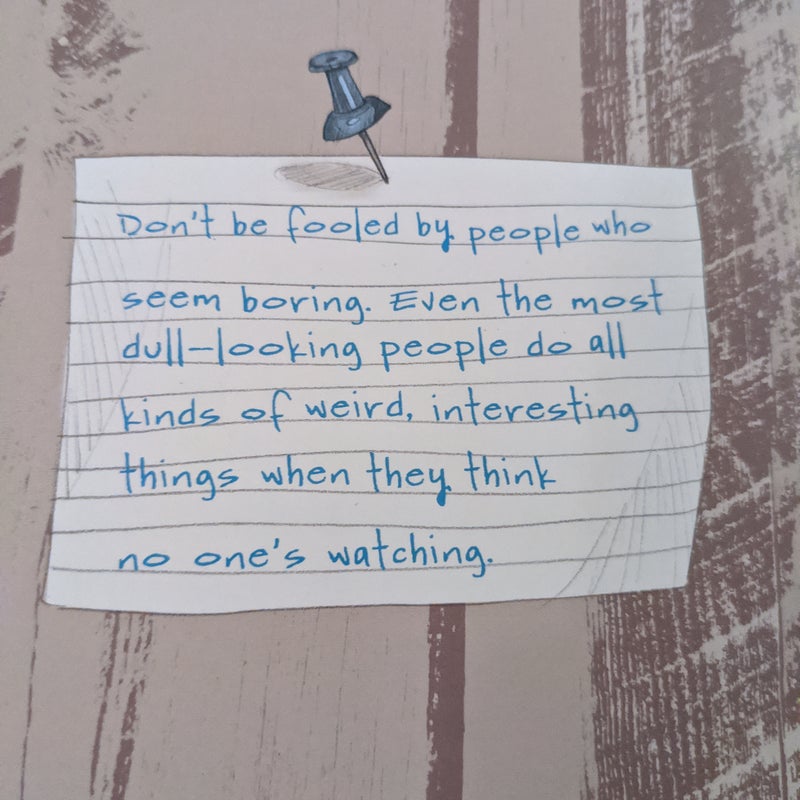 Don't be fooled by people who
seem boring. Even the most
dull-looking people do all
kinds of weird, interesting
things when they think
no one's watching.